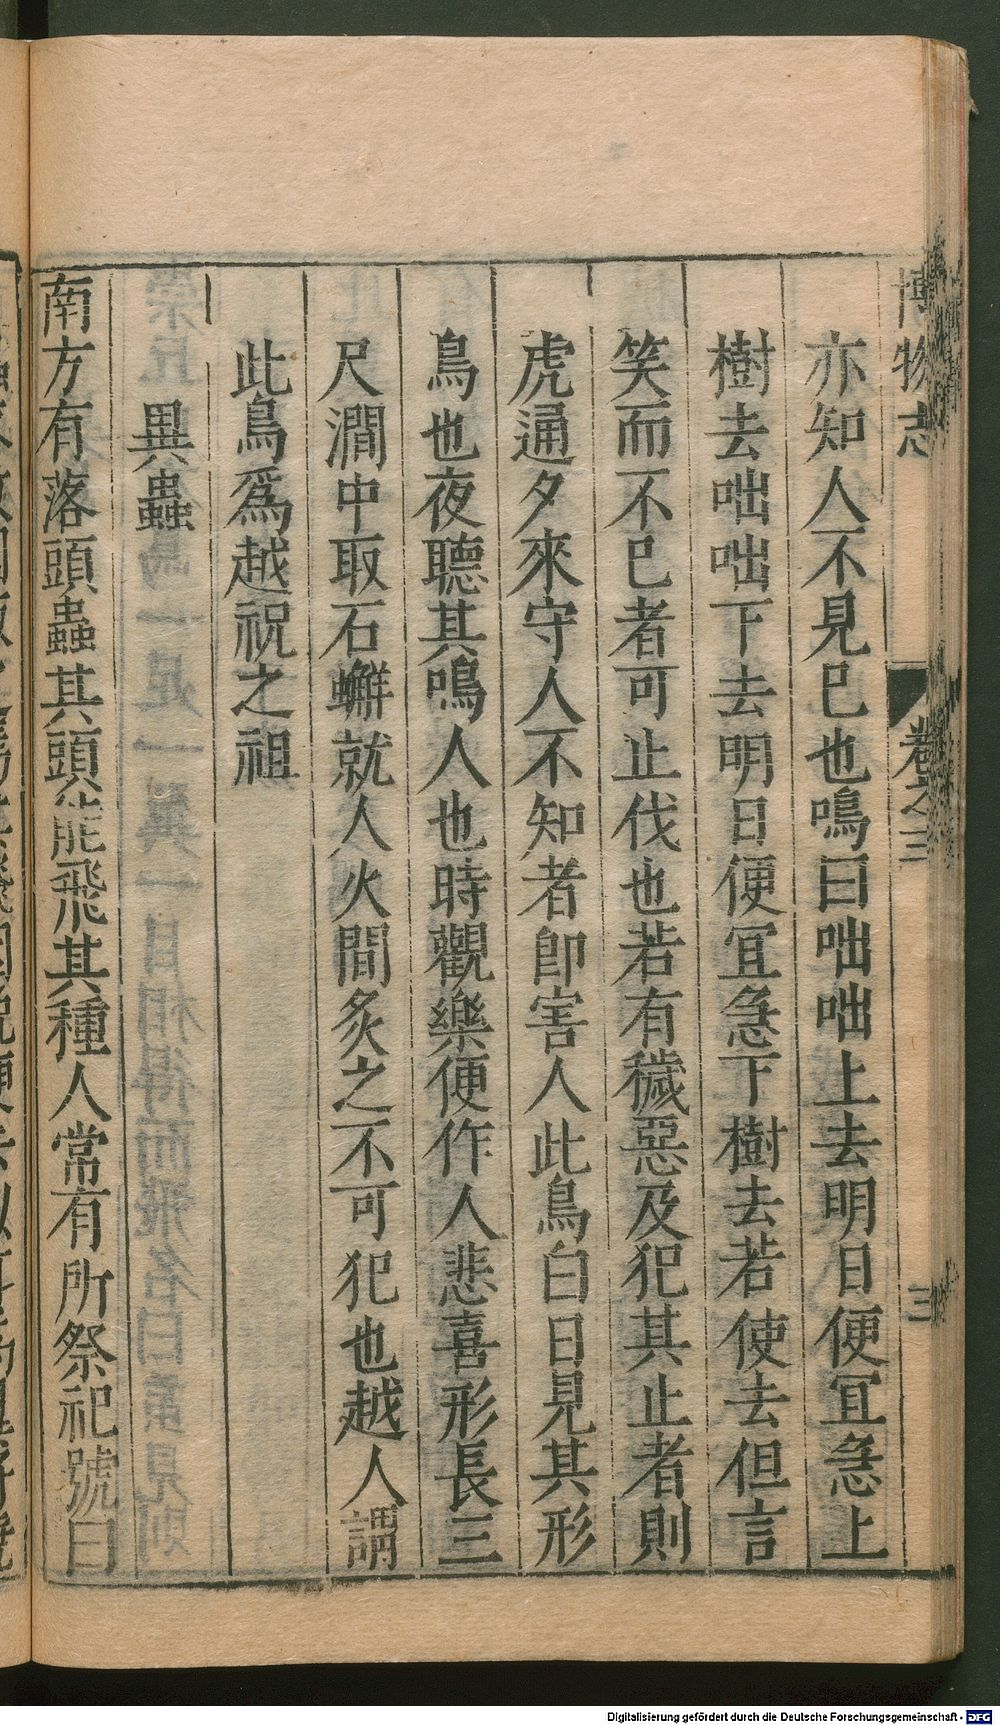 博物志 卷之三 三
亦知人不見已也鳴曰咄咄上去明日便冝急上
樹去咄咄下去明日便冝急下樹去若使去但言
笑而不已者可止伐也若有穢惡及犯其止者則
虎通夕來守人不知者卽害人此鳥白日見其形
鳥也夜聽其鳴人也時觀樂便作人悲喜形長三
尺澗中取石蠏就人火間炙之不可犯也越人謂
此鳥爲越祝之祖
異蟲
南方有落頭蟲其頭能飛其種人常有所祭祀號曰
Digitalisierung gefördert durch die Deutsche Forschungsgemeinschaft - DFG